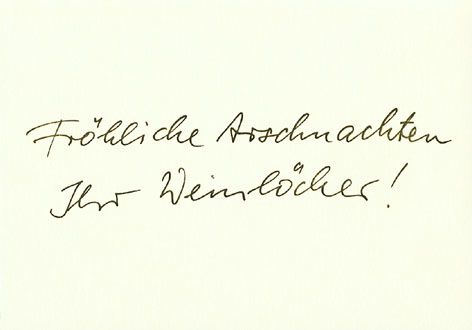 Fröhliche Arschnachten
Ihr Weinlöcher!